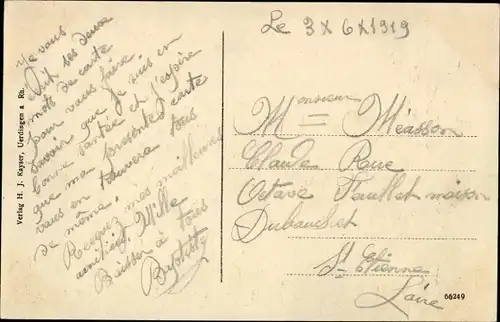 Verlag H. J. Kayser, Uerdingen a. Rh.
Je vous
écrit ses deux
mots de carte
pour vous faire
savoir que je suis en
bonne santée et j'espère
que ma présentes carte
vous en trouvera tous
de même.
Reçevez mes meilleures
amitiées. Mille
Baisser à tous
Baptiste
Le 3 x 6 x 1919
Monsieur Méasson
Claude Rue
Octave Feuillet maison
Dubouchet
St Etienne
Loire
66249